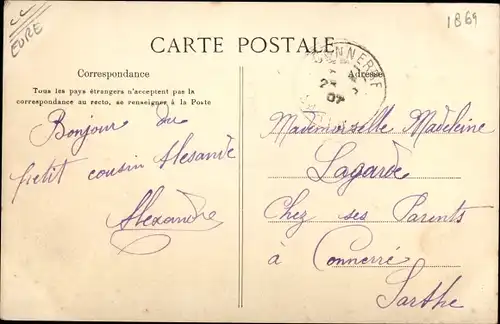 EURE
1869
CARTE POSTALE
Correspondance
Tous les pays étrangers n'acceptent pas la
correspondance au recto, se renseigner à la Poste
Bonjour du
petit cousin Alesandre
Alexandre
CONNERRE
07
Adresse
Mademoiselle Madeleine
Lagarde
Chez ses Parents
à Connerré
Sarthe